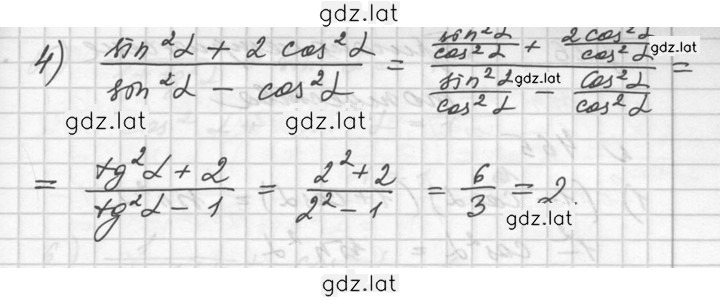 gdz.lat
4) (sin²α + 2 cos²α)/(sin²α − cos²α) = (sin²α/cos²α + 2 cos²α/cos²α)/(sin²α/cos²α − cos²α/cos²α) =
gdz.lat
gdz.lat
gdz.lat gdz.lat
= (tg²α + 2)/(tg²α − 1) = (2² + 2)/(2² − 1) = 6/3 = 2.
gdz.lat
gdz.lat